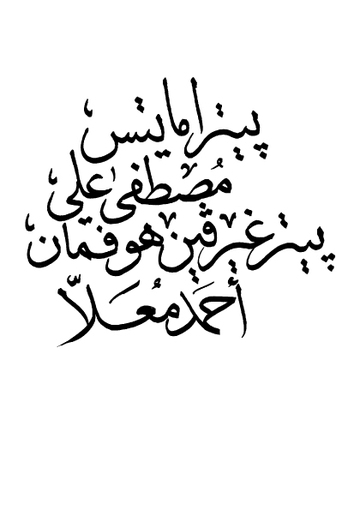 پيترا مايتس
مُصطفىٰ علي
پيتر غيرڤين هوفمان
أحمَد مُعَلّا